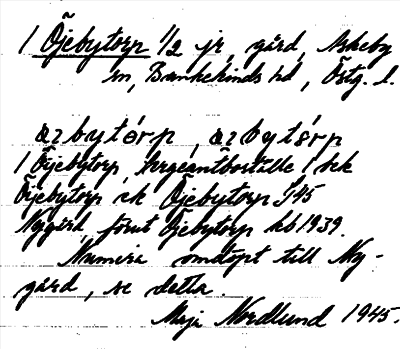 1 Öjebytorp 1/2 jr, gård, Askeby
sn, Bankekinds hd, Östg. l.
azbytórp, azbytórp
1 Öijebytorp, Sergeantboställe 1 bek
Öijebytorp ek Öjebytorp J45
Nygård, förut Öjebytorp kb 1939.
Numera omdöpt till Ny-
gård, se detta.
Maja Nordlund 1945.